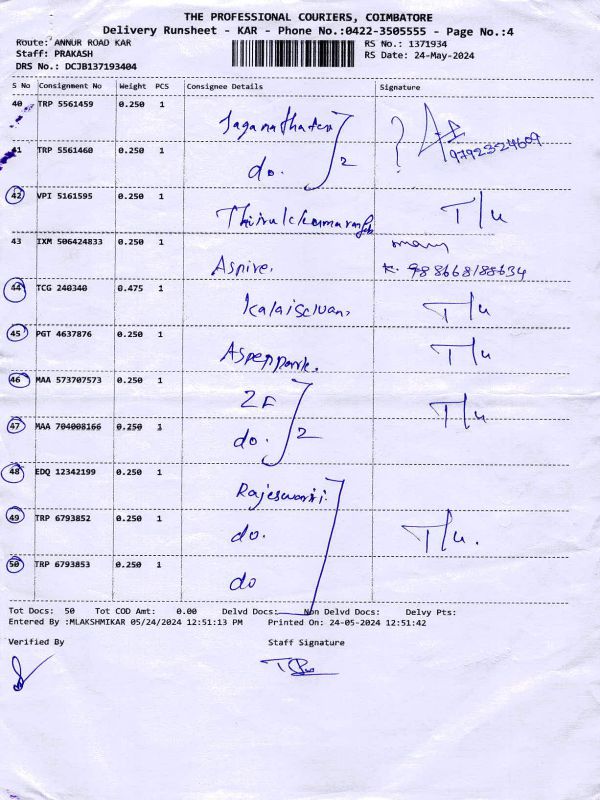 THE PROFESSIONAL COURIERS, COIMBATORE
Delivery Runsheet - KAR - Phone No.:0422-3505555 - Page No.:4
Route: ANNUR ROAD KAR
RS No.: 1371934
Staff: PRAKASH
RS Date: 24-May-2024
DRS No.: DCJB137193404
S No Consignment No Weight PCS Consignee Details Signature
40 TRP 5561459 0.250 1
41 TRP 5561460 0.250 1 do. 2
42 VPI 5161595 0.250 1 T/u
43 IXM 506424833 0.250 1 Aspire.
44 TCG 240340 0.475 1 Kalaiselvan, T/u
45 PGT 4637876 0.250 1 T/u
46 MAA 573707573 0.250 1 ZF T/u
47 MAA 704008166 0.250 1 do. 2
48 EDQ 12342199 0.250 1 Rajeswari.
49 TRP 6793852 0.250 1 do. T/u.
50 TRP 6793853 0.250 1 do
Tot Docs: 50 Tot COD Amt: 0.00 Delvd Docs: Non Delvd Docs: Delvy Pts:
Entered By :MLAKSHMIKAR 05/24/2024 12:51:13 PM Printed On: 24-05-2024 12:51:42
Verified By Staff Signature